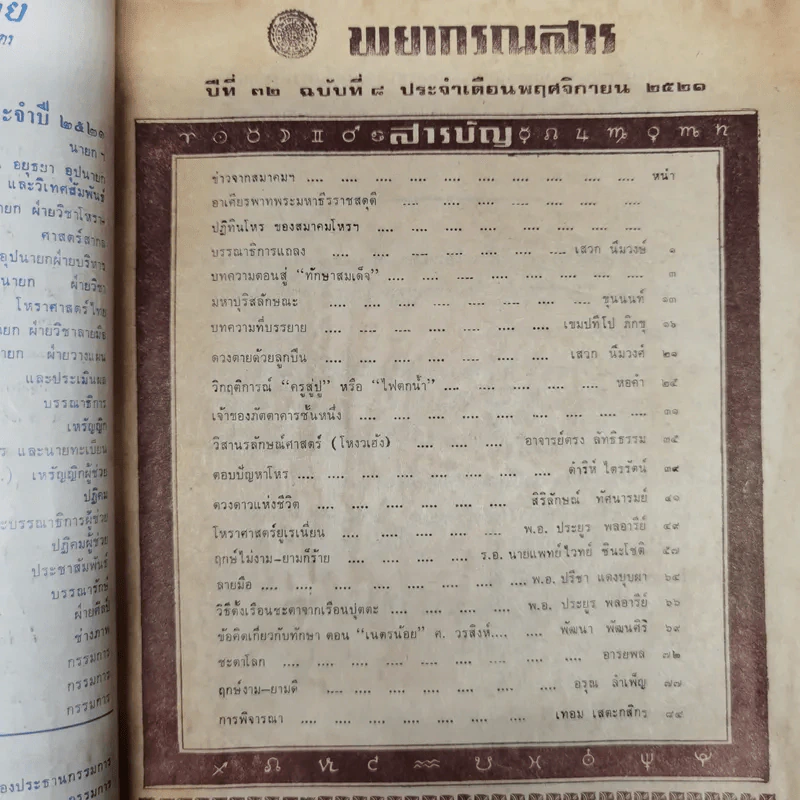 พยากรณสาร
ปีที่ ๓๒ ฉบับที่ ๘ ประจำเดือนพฤศจิกายน ๒๕๒๑
สารบัญ
ข่าวจากสมาคมฯ .... .... .... .... .... .... .... .... หน้า
อาเศียรพาทพระมหาธีรราชสดุดี .... .... .... .... .... ....
ปฏิทินโหร ของสมาคมโหรฯ .... .... .... .... .... .... ....
บรรณาธิการแถลง .... .... .... .... .... เสวก นิ่มวงษ์ ๑
บทความตอนสู่ “ทักษาสมเด็จ” .... .... .... .... .... .... ๓
มหาปุริสลักษณะ .... .... .... .... .... .... ขุนนนท์ ๑๓
บทความที่บรรยาย .... .... .... .... .... เขมปทีโป ภิกขุ ๑๖
ดวงตายด้วยลูกปืน .... .... .... .... .... เสวก นิ่มวงศ์ ๒๑
วิกฤติการณ์ “ครูสู่ปู่” หรือ “ไฟตกน้ำ” .... .... .... .... หอคำ ๒๕
เจ้าของภัตตาคารชั้นหนึ่ง .... .... .... .... .... .... .... ๓๑
วิสานรลักษณ์ศาสตร์ (โหงวเฮ้ง) .... .... .... อาจารย์ตรง ลัทธิธรรม ๓๕
ตอบปัญหาโหร .... .... .... .... .... .... ดำริห์ ไตรรัตน์ ๓๙
ดวงดาวแห่งชีวิต .... .... .... .... .... สิริลักษณ์ ทัศนารมย์ ๔๑
โหราศาสตร์ยูเรเนี่ยน .... .... .... .... พ.อ. ประยูร พลอารีย์ ๔๙
ฤกษ์ไม่งาม-ยามก็ร้าย .... .... .... .... ร.อ. นายแพทย์ไวทย์ ชินะโชติ ๕๗
ลายมือ .... .... .... .... .... .... .... พ.อ. ปรีชา แดงบุบผา ๖๔
วิธีตั้งเรือนชะตาจากเรือนปุตตะ .... .... .... .... พ.อ. ประยูร พลอารีย์ ๖๖
ข้อคิดเกี่ยวกับทักษา ตอน “เนตรน้อย” ศ. วรสิงห์.... .... พัฒนา พัฒนศิริ ๖๙
ชะตาโลก .... .... .... .... .... .... .... อารยพล ๗๒
ฤกษ์งาม-ยามดี .... .... .... .... .... .... อรุณ ลำเพ็ญ ๗๗
การพิจารณา .... .... .... .... .... .... เทอม เสตะกสิกร ๘๔
ะจำปี ๒๕๒๑
นายกฯ
อยุธยา อุปนายก
และวิเทศสัมพันธ์
ายก ฝ่ายวิชาโหรา
ศาสตร์สากล
อุปนายกฝ่ายบริหาร
นายก ฝ่ายวิชา
โหราศาสตร์ไทย
ายก ฝ่ายวิชาลายมือ
ายก ฝ่ายวางแผน
และประเมินผล
บรรณาธิการ
เหรัญญิก
และนายทะเบียน
เหรัญญิกผู้ช่วย
ปฏิคม
ะบรรณาธิการผู้ช่วย
ปฏิคมผู้ช่วย
ประชาสัมพันธ์
บรรณารักษ์
ฝ่ายศิลป์
ช่างภาพ
กรรมการ
กรรมการ
กรรมการ
องประธานกรรมการ
กรรมการ